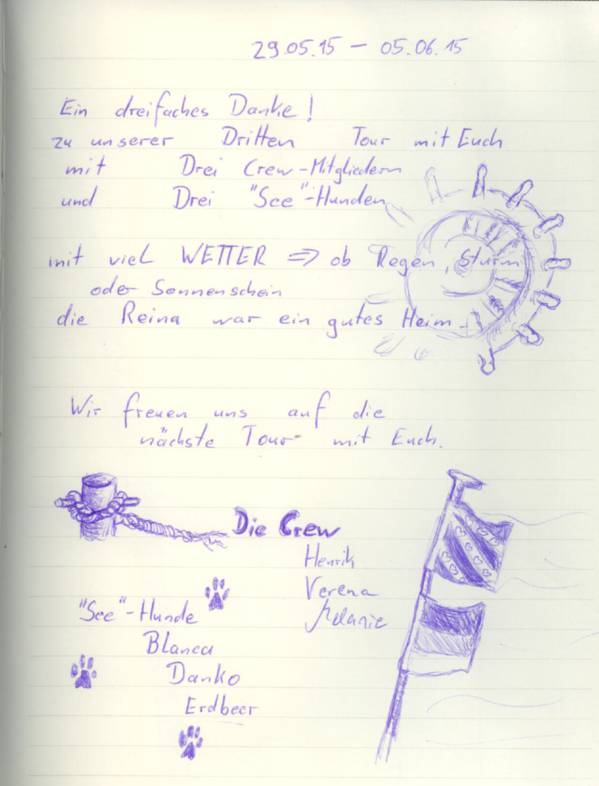 29.05.15 – 05.06.15
Ein dreifaches Danke!
zu unserer Dritten Tour mit Euch
mit Drei Crew-Mitgliedern
und Drei "See"-Hunden
mit viel WETTER => ob Regen, Sturm
oder Sonnenschein
die Reina war ein gutes Heim.
Wir freuen uns auf die
nächste Tour mit Euch.
Die Crew
Henrik
Verena
Melanie
"See"-Hunde
Blanca
Danko
Erdbeer